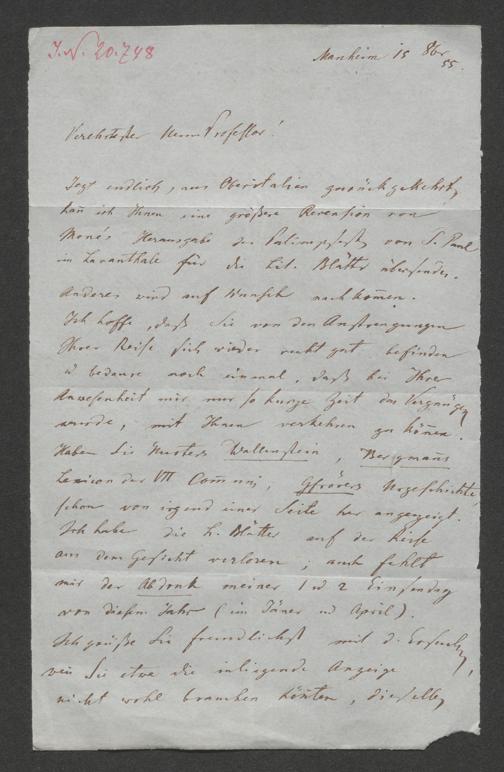 I.N. 20.748
Manheim 15 8br
55.
Verehrtester Herr Professor!
Jezt endlich, aus Oberitalien zurückgekehrt,
kañ ich Ihnen eine größere Recension von
Mone's Herausgabe des Palimpsests von S. Paul
im Lavanthale für die Lit. Blätter übersenden.
Anderes wird auf Wunsch nachkom̄en.
Ich hoffe, daß Sie von den Anstrengungen
Ihrer Reise sich wieder recht gut befinden
u bedaure noch einmal, daß bei Ihrer
Anwesenheit mir nur so kurze Zeit das Vergnügen
wurde, mit Ihnen verkehren zu köñen.
Haben Sie Wallenstein, Bergmañs
Lexicon der VII Com̄uni, Gfrörers Urgeschichte
schon von irgend einer Seite her angezeigt.
Ich habe die L. Blätter auf der Reise
aus dem Gesicht verloren; auch fehlt
mir der Abdruk meiner 1 u 2 Einsendung
von diesem Jahr (im Jäner u April).
Ich grüße Sie freundlichst mit d. Ersuchen,
weñ Sie etwa die inliegende Anzeige
nicht wohl brauchen köñten, dieselbe